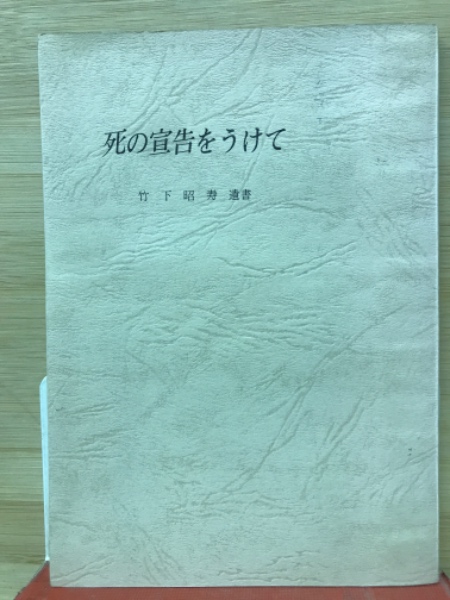 死の宣告をうけて
竹下昭寿遺書